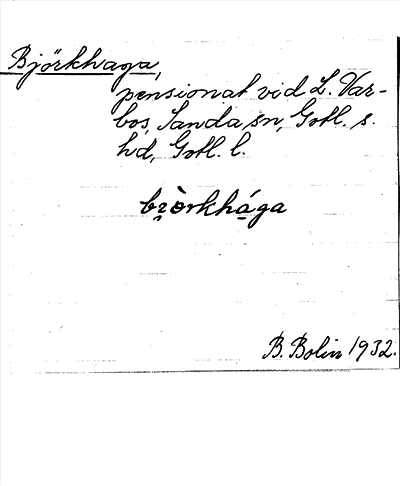 Björkhaga,
pensionat vid L. Var-
bos, Sanda sn, Gotl. s.
hd, Gotl. l.
bi̯òrkhá̱ga
B. Bolin 1932.